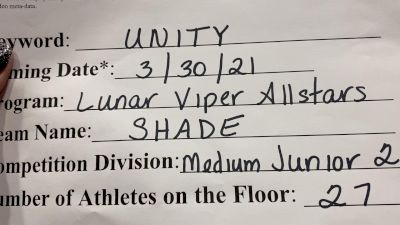 meta-data.
eyword: UNITY
ming Date*: 3/30/21
rogram: Lunar Viper Allstars
eam Name: SHADE
ompetition Division: Medium Junior 2
umber of Athletes on the Floor: 27